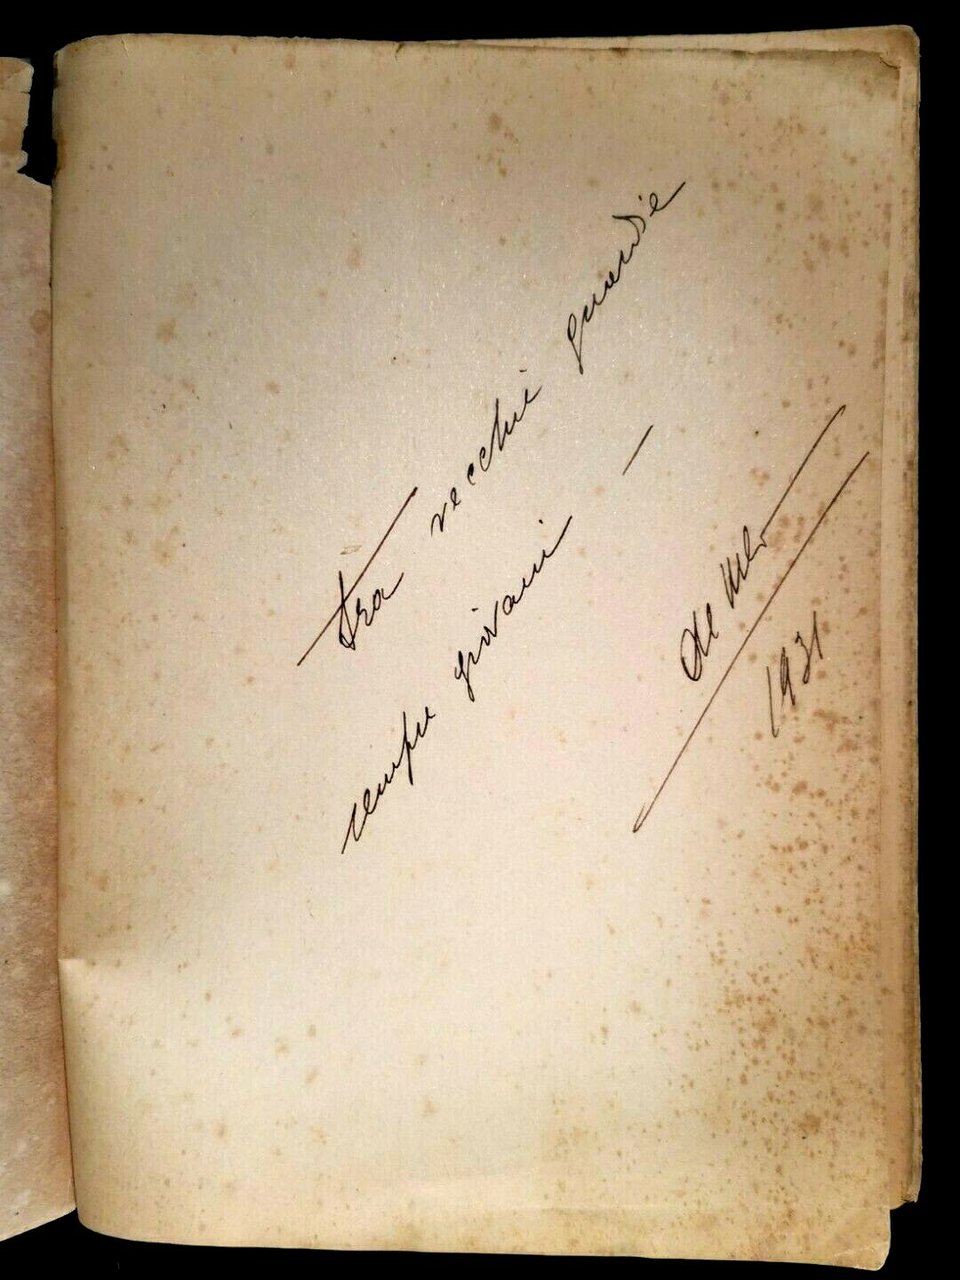 tra vecchie guardie
sempre giovani —
1931